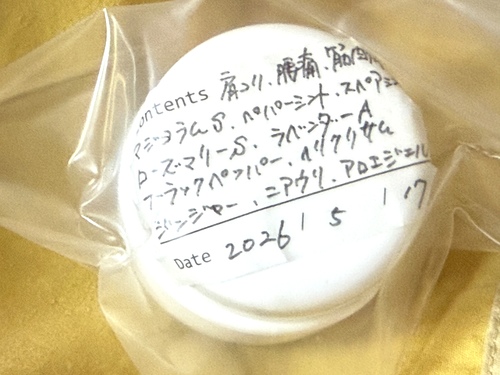 Contents 肩コリ、腰痛、筋肉
マジョラムS、ペパーミント、スペアミ
ローズマリーS、ラベンダーA
ブラックペッパー、ヘリクリサム
ジンジャー、ニアウリ、アロエジェル
Date 2026 / 5 / 17